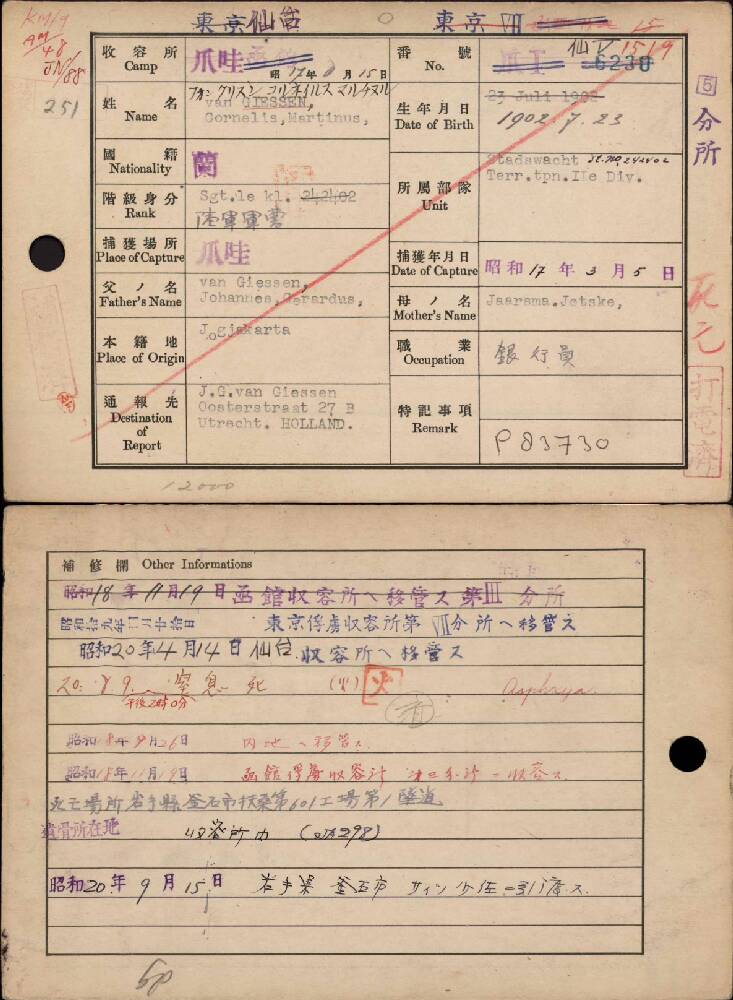 東京 仙台 東京 VII 15
KM/9
AM
48
JN/88
251
收容所 Camp 爪哇 函館 昭 17年 月15日
番號 No. 仙V 1519 6230
姓名 Name フォン グリスン コルネイルス マルチヌル
van GIESSEN,
Cornelis, Martinus,
生年月日 Date of Birth 23 Juli 1902
1902. 7. 23
5 分所
國籍 Nationality 蘭
所屬部隊 Unit Stadswacht St.no. 242402
Terr.tpn.IIe Div.
階級身分 Rank Sgt.1e kl. 242402
陸軍軍曹
捕獲場所 Place of Capture 爪哇
捕獲年月日 Date of Capture 昭和 17 年 3 月 5 日
父ノ名 Father's Name van Giessen,
Johannes, Gerardus,
母ノ名 Mother's Name Jaarsma.Jetske,
本籍地 Place of Origin Jogjakarta
職業 Occupation 銀行員
死亡
打電濟
通報先 Destination of Report J.G.van Giessen
Oosterstraat 27 B
Utrecht. HOLLAND.
特記事項 Remark P 83730
12000
補修欄 Other Informations
昭和18年11月19日函館収容所ヘ移管ス第III分所
昭和拾九年四月廿拾日 東京俘虜収容所第VII分所ヘ移管ス
昭和20年4月14日仙台収容所ヘ移管ス
20. 8. 9. 窒息死 (火) 火
午後2時0分
昭和18年9月26日 内地ヘ移管ス
昭和18年11月19日 函館俘虜収容所第三分所ニ収容ス
死亡場所岩手縣釜石市扶桑第601工場第1隧道
遺骨所在地 収容所内
昭和20年9月15日 岩手県釜石市 サイン少佐ニ引渡ス